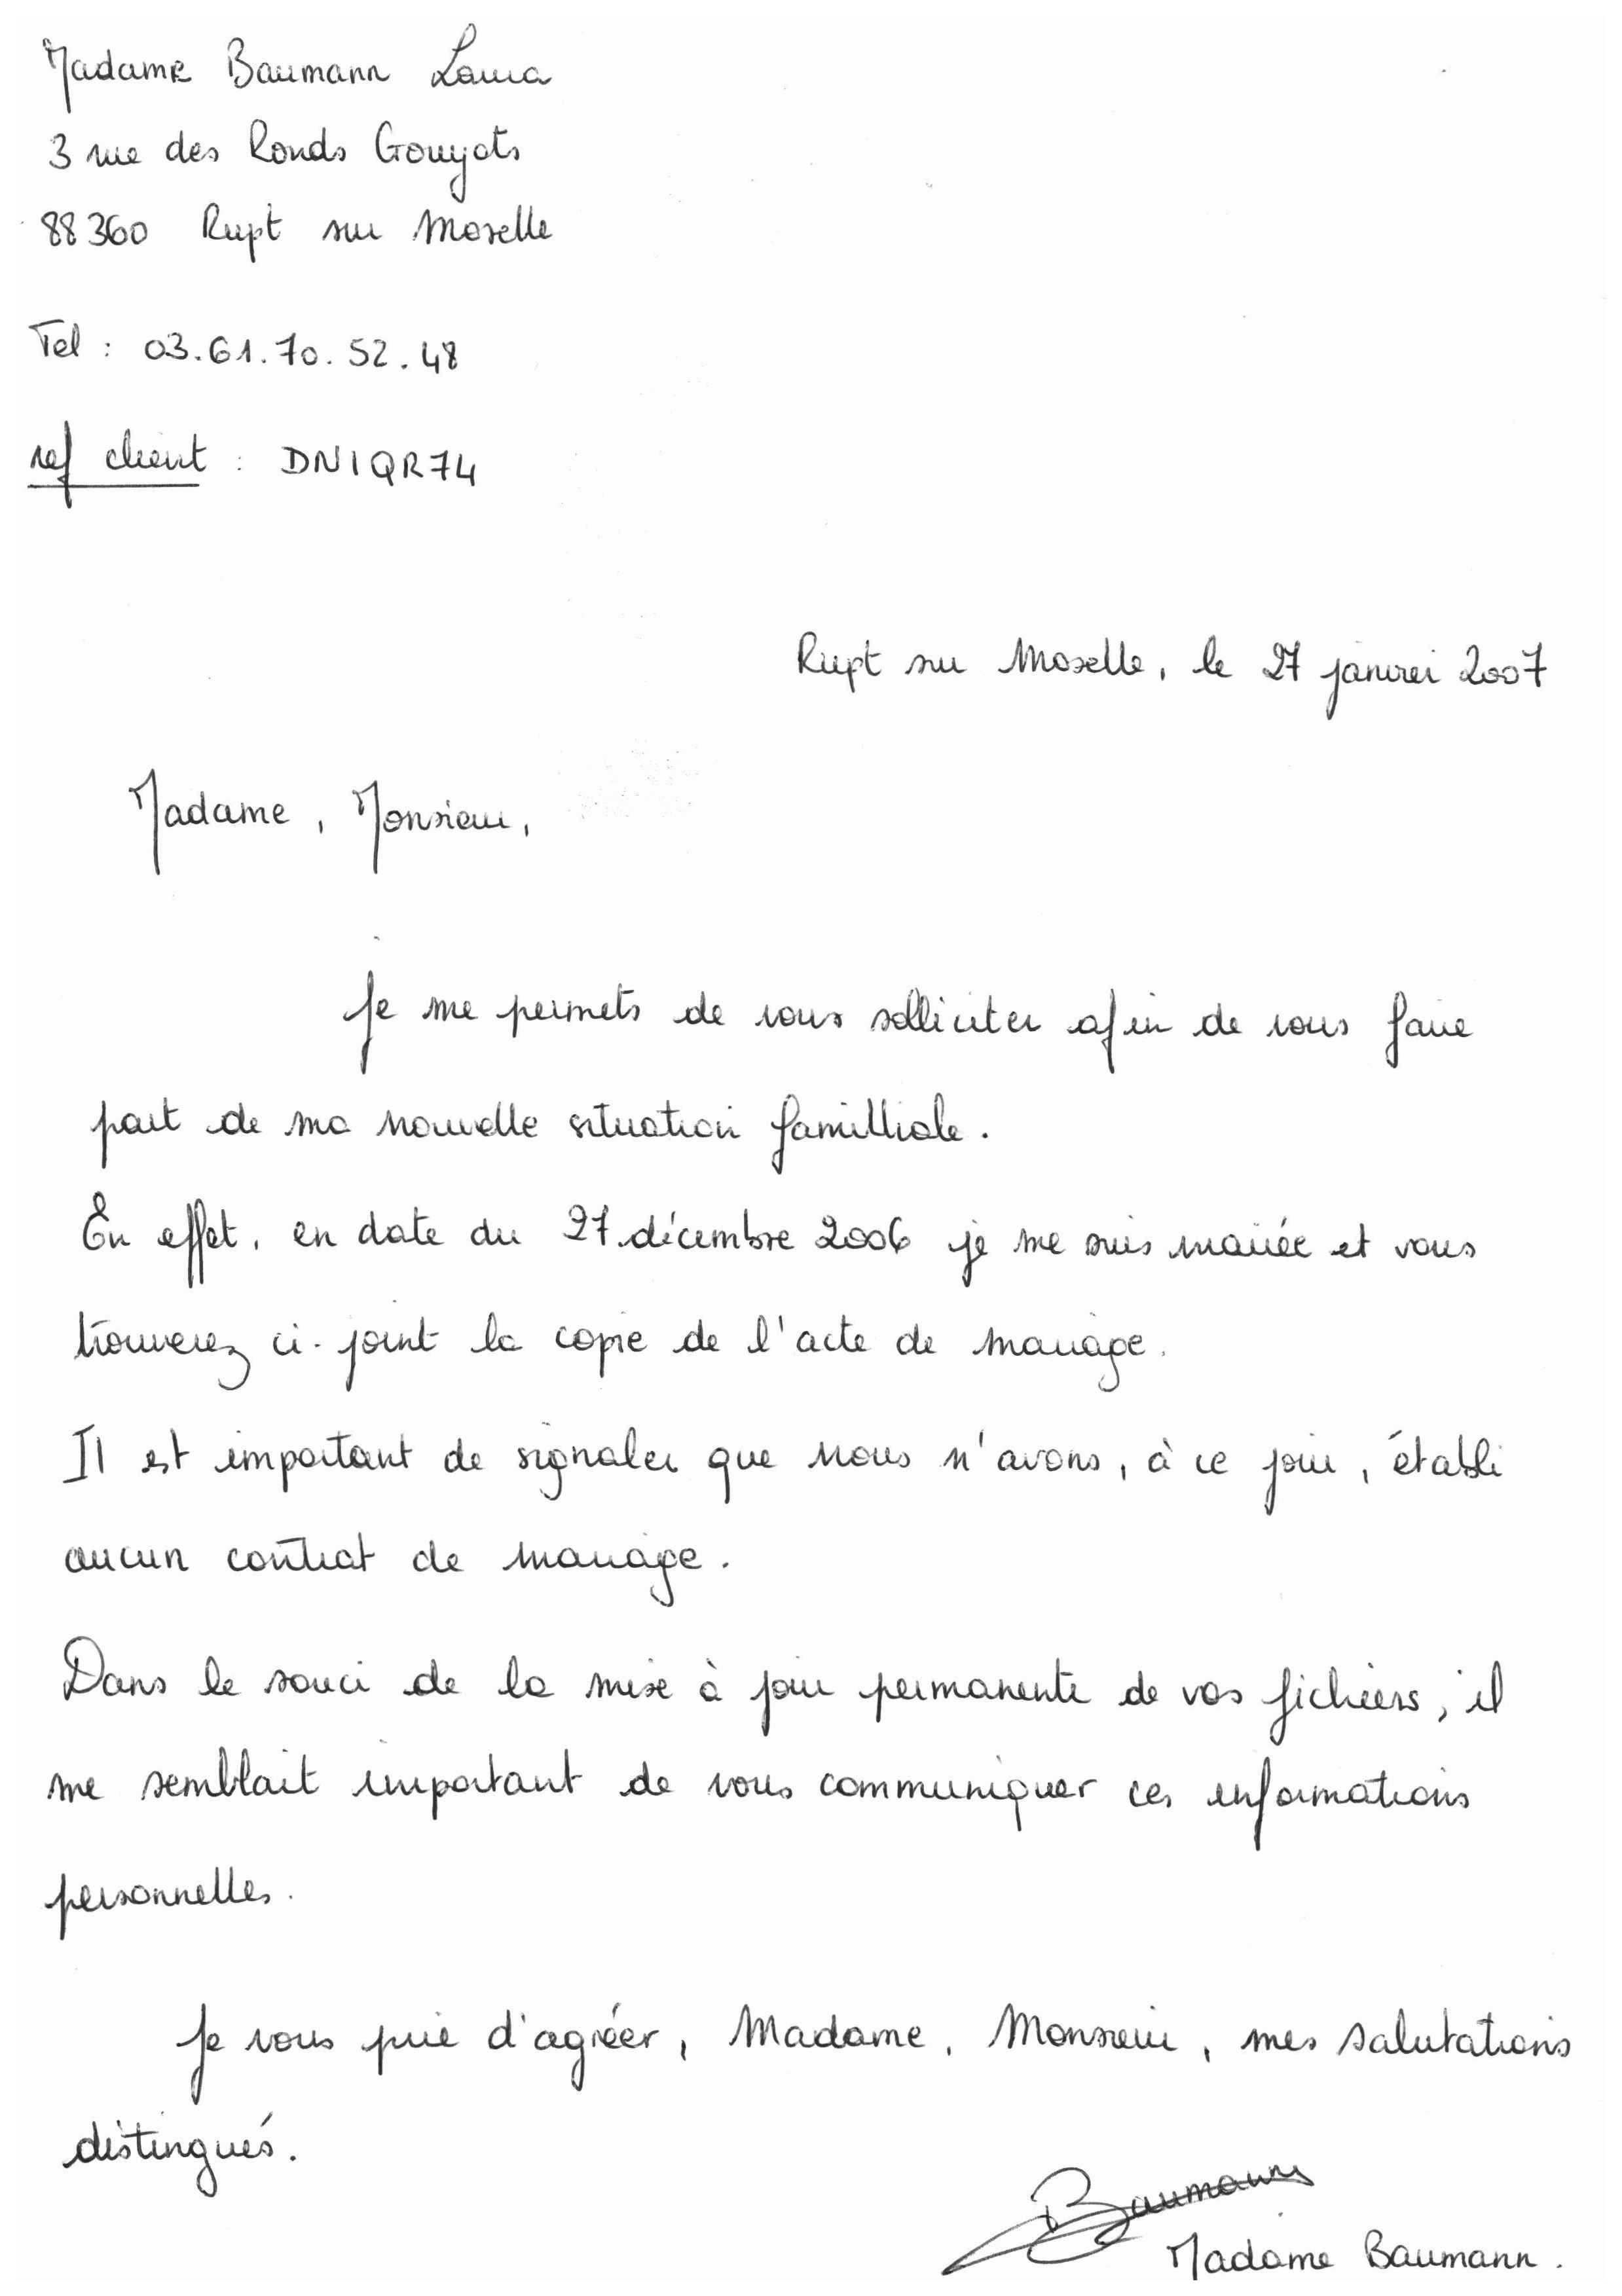 Madame Baumann Laura
3 rue des Ronds Gouyots
88360 Rupt sur Moselle
Tel : 03.61.70.52.48
ref client : DNIQR74
Rupt sur Moselle, le 27 janvier 2007
Madame, Monsieur,
Je me permets de vous solliciter afin de vous faire
part de ma nouvelle situation familliale.
En effet, en date du 27 décembre 2006 je me suis mariée et vous
trouverez ci-joint la copie de l'acte de mariage.
Il est important de signaler que nous n'avons, à ce jour, établi
aucun contrat de mariage.
Dans le souci de la mise à jour permanente de vos fichiers, il
me semblait important de vous communiquer ces informations
personnelles.
Je vous prie d'agréer, Madame, Monsieur, mes salutations
distingués.
Baumann
Madame Baumann.